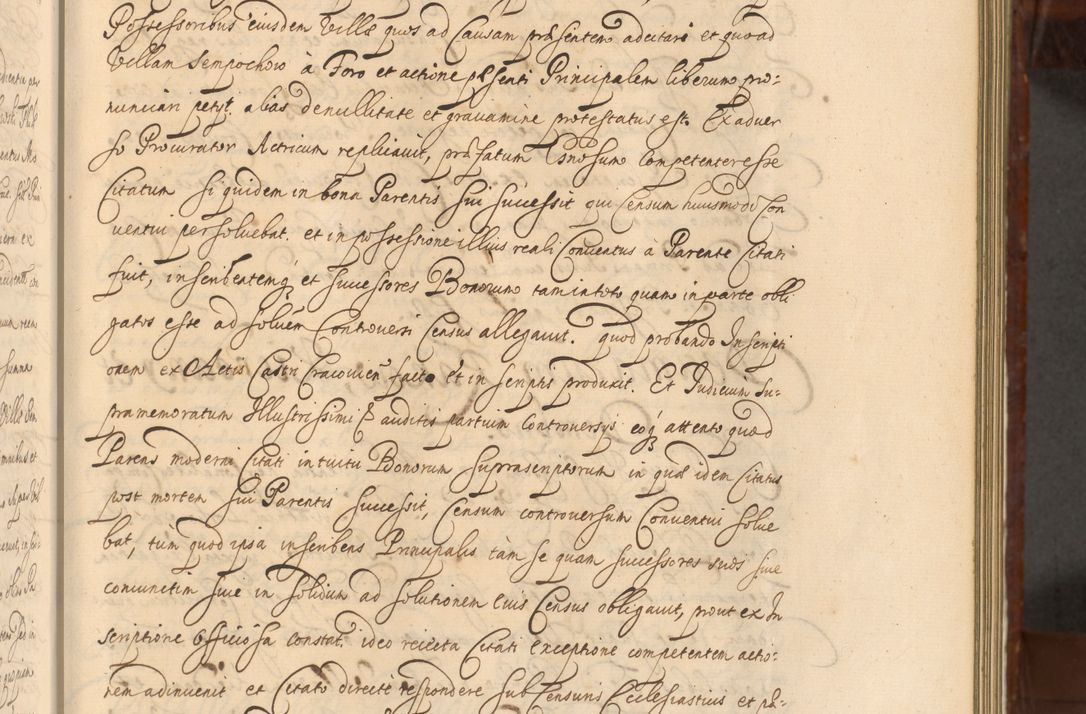 Possessoribus eiusdem Villæ quos ad Causam præsentem adcitari et quoad
Villam Sempochow à Foro et actione pñsenti Principalem liberum pro:
nunciari petyt alias de nullitate et gravamine protestatus est. Ex adver
so Procurator Actricum replicavit, præfatum Gnosum competenter esse
Citatum si quidem in bona Parentis sui successit qui Censum huiusmodi Con
ventui persoluebat. et in possessione illius reali Conventus à Parente Citati
fuit, inscribentemq et successores Bonorum tam in toto quam in parte obli
gatos esse ad soluẽm Controversi Census allegavit. quod probando Inscripti
onem ex Actis Castri Cracovieñ facto et in scriptis produxit. Et Iudicium Su:
pramemoratum Illustrissimi P auditis partium controversys eoq attento quod
Parens moderni Citati intuitu Bonorum suprascriptorum in quæ idem Citatus
post mortem sui Parentis successit, Censum controversum Conventui solue
bat, tum quod ipsa inscribens Principalis tàm se quam successores suos sive
coniunctim sive in solidum ad solutionem eius Census obligavit, prout ex In
scriptione officiosa constat. ideo reiecta Citati exceptione competentem actio:
nem adinvenit et Citato directe respondere sub Censuris Ecclesiasticis et pæ: